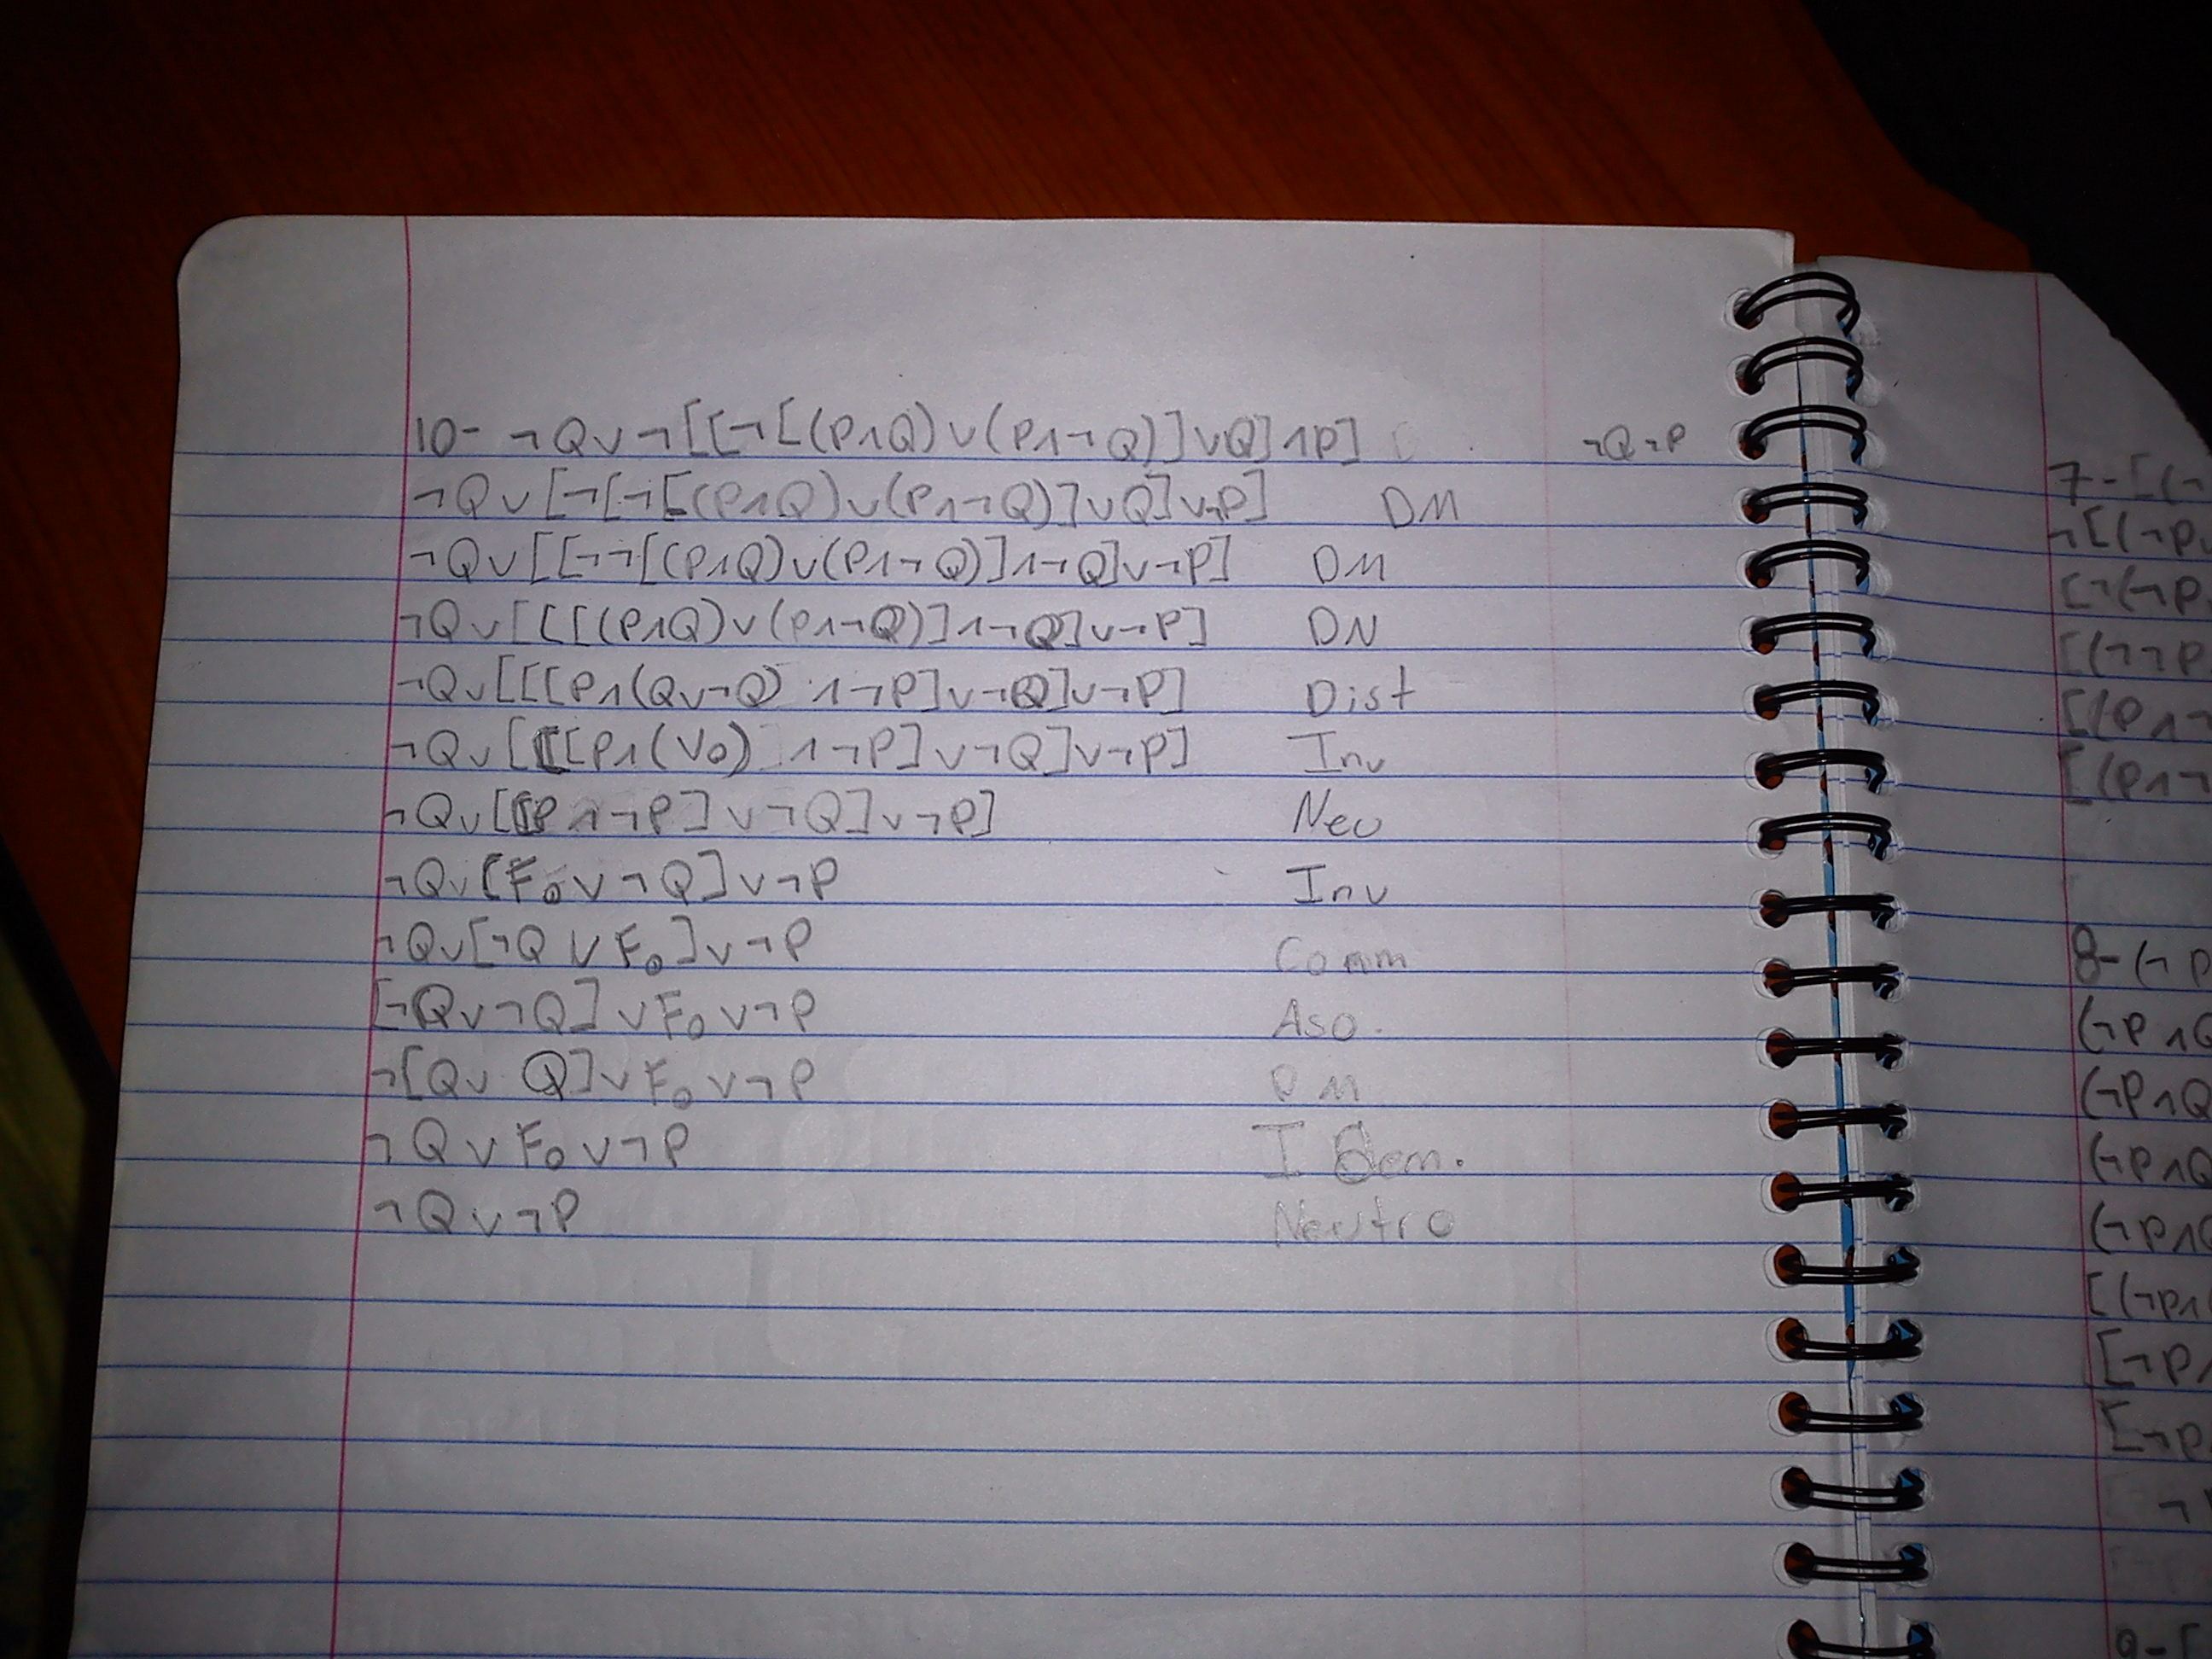 10- ¬Q∨¬[[¬[(P∧Q)∨(P∧¬Q)]∨Q]∧P] ¬Q¬P
¬Q∨[¬[¬[(P∧Q)∨(P∧¬Q)]∨Q]∨¬P] DM
¬Q∨[[¬¬[(P∧Q)∨(P∧¬Q)]∧¬Q]∨¬P] DM
¬Q∨[[[(P∧Q)∨(P∧¬Q)]∧¬Q]∨¬P] DN
¬Q∨[[[P∧(Q∨¬Q) ∧¬P]∨¬Q]∨¬P] Dist
¬Q∨[[[P∧(V₀) ∧¬P]∨¬Q]∨¬P] Inv
¬Q∨[[P∧¬P]∨¬Q]∨¬P] Neu
¬Q∨[F₀∨¬Q]∨¬P Inv
¬Q∨[¬Q∨F₀]∨¬P Comm
[¬Q∨¬Q]∨F₀∨¬P Aso.
¬[Q∨Q]∨F₀∨¬P DM
¬Q∨F₀∨¬P Idem.
¬Q∨¬P Neutro
7-[(¬
¬[(¬P∨
[¬(¬P
[(¬¬P
[(P∧¬
[(P∧¬
8-(¬P
(¬P∧Q
(¬P∧Q
(¬P∧Q
(¬P∧Q
[(¬P∧
[¬P∧
[¬P
9-[